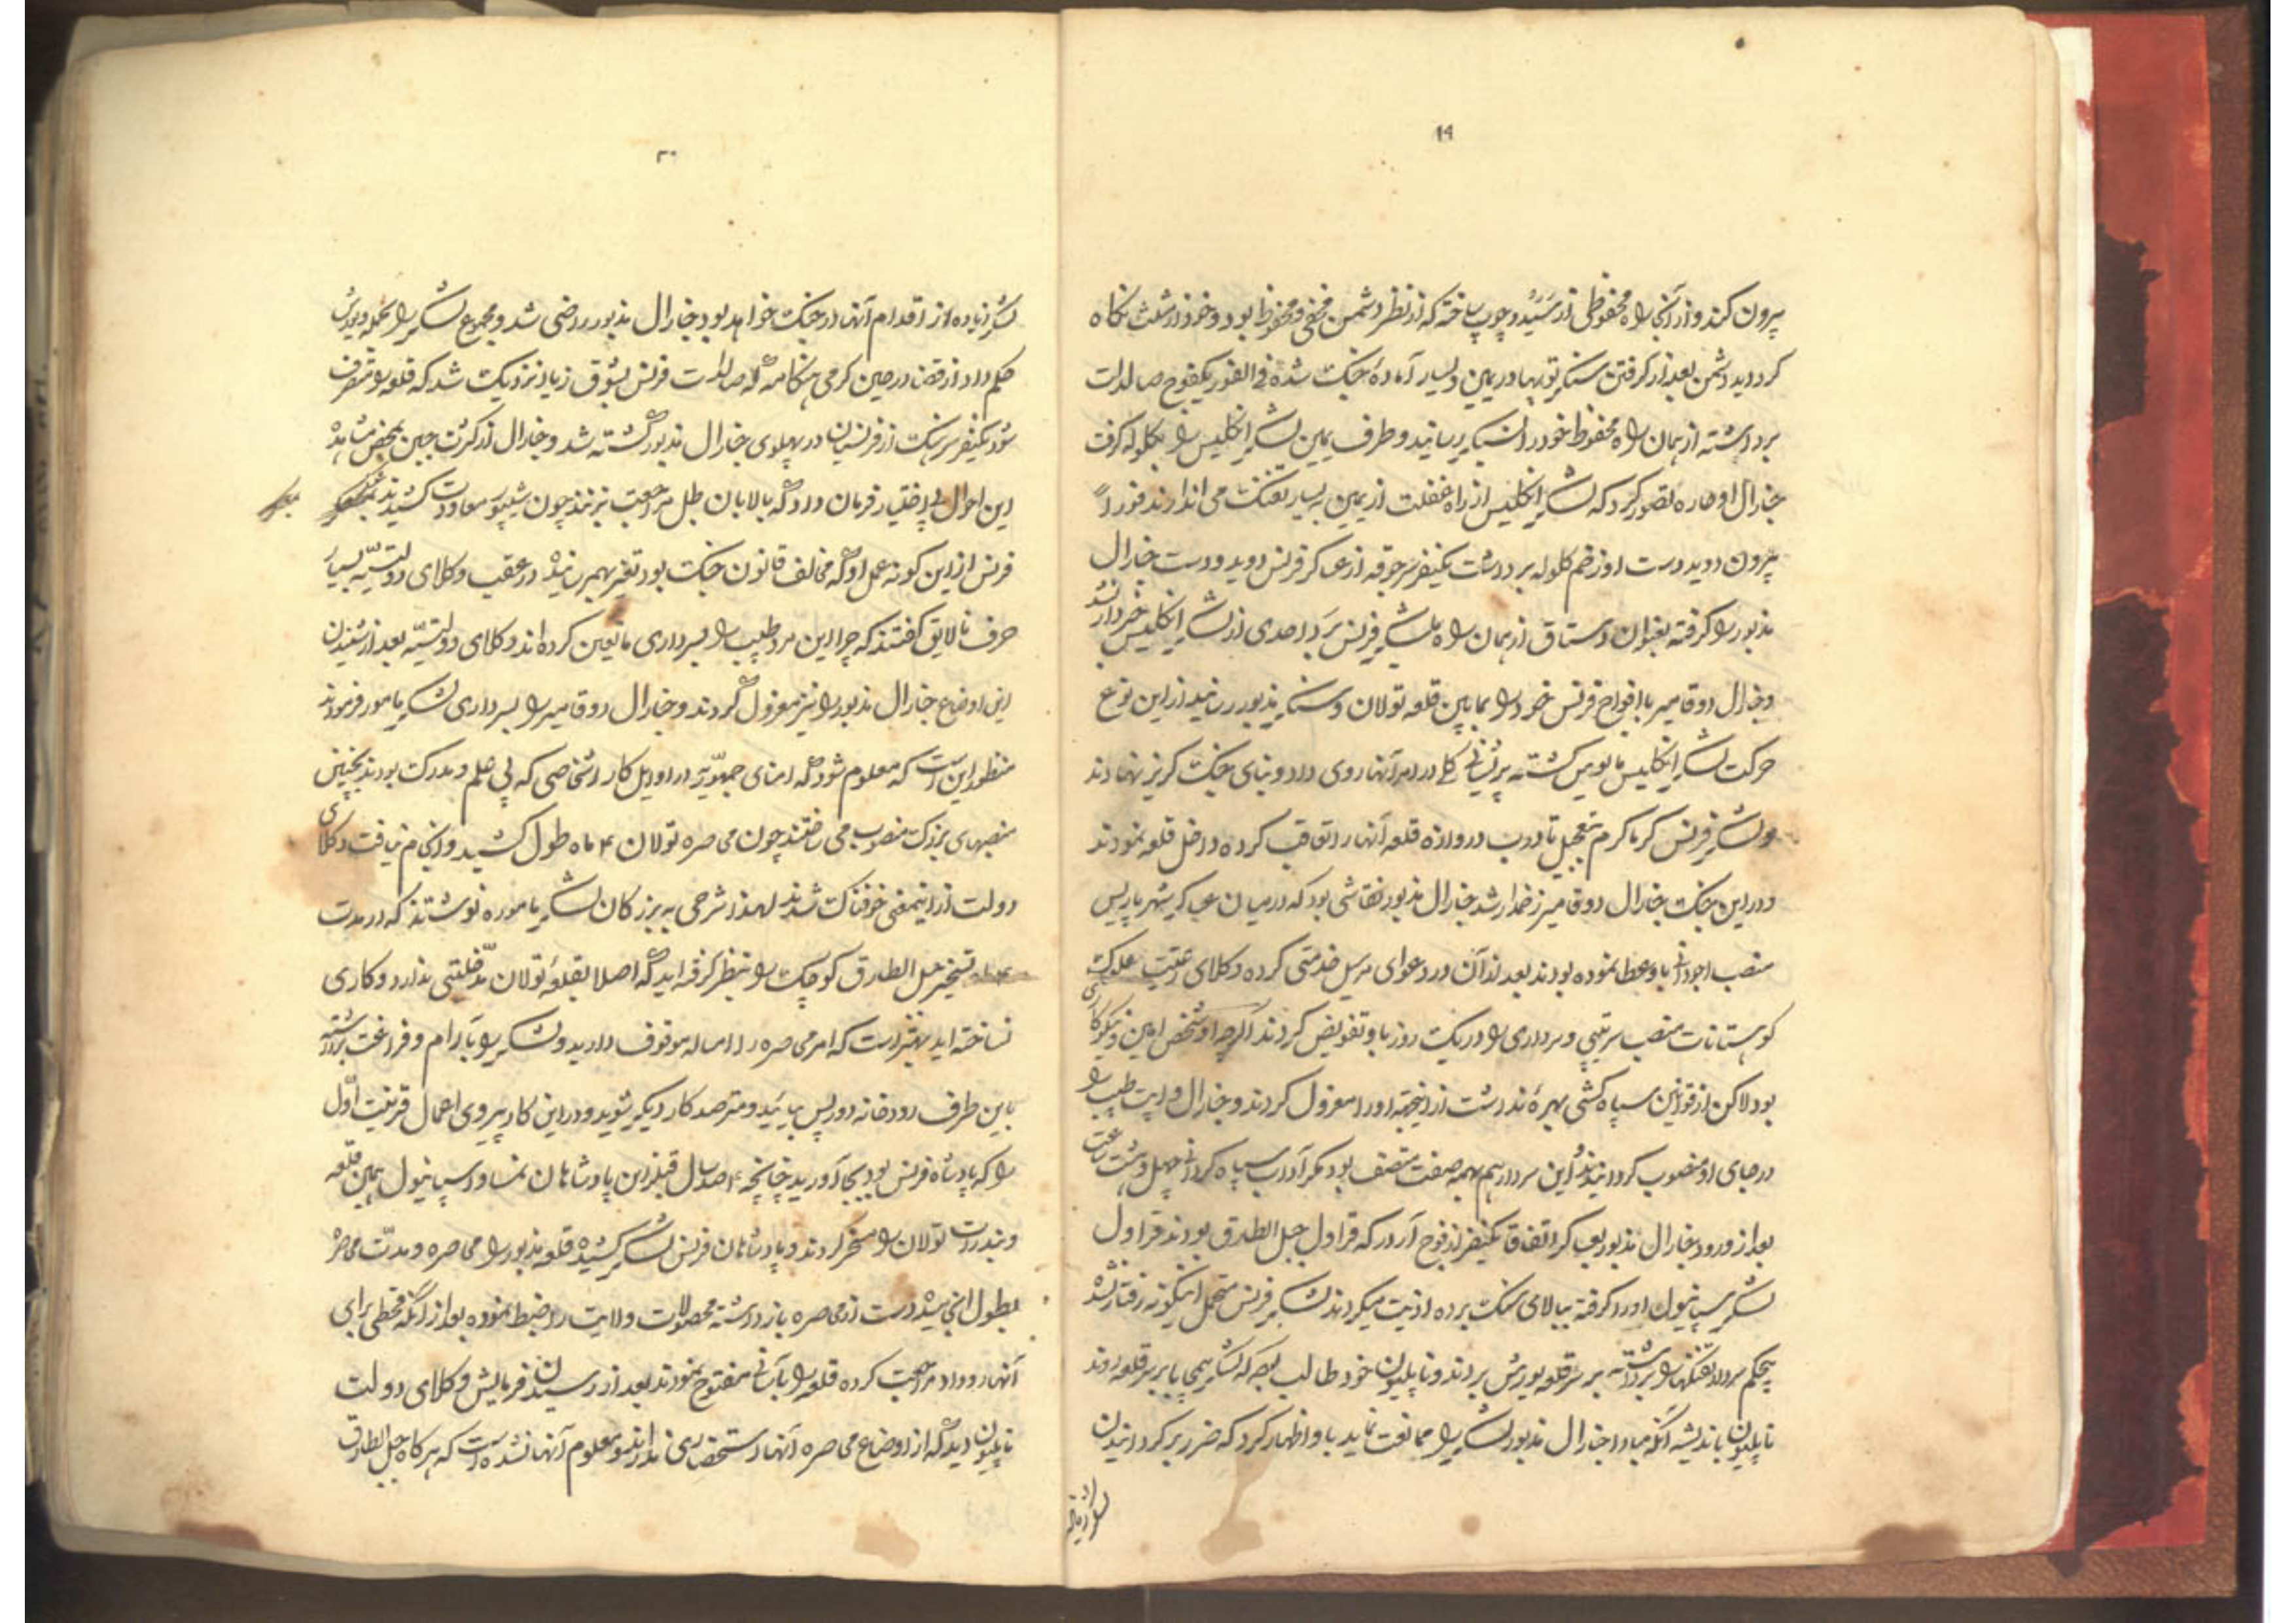 ۱۹
بیرون کند و از آنجا راه محفوظی از سَنَد و چوب ساخته که از نظر دشمن مخفی و محفوظ بود و خود در مثلث نگاه
گردید دشمن بعد از گرفتن سنگر توپها در یمین و یسار آماده جنگ شده فی الفور یکفوج صالدات
برداشته از همان راه محفوظ خود را بسنگر رسانید و طرف یمین لشکر انگلیس را بگلوله گرفت
جنارال اوهاره تصور کرد که لشکر انگلیس از راه غفلت از یمین به یسار تفنگ می اندازند فوراً
بیرون دوید دست او زخم گلوله برداشت یکنفر سرجوقه از عسکر فرنس دوید و دست جنارال
مذبور را گرفته بعنوان دستاق از همان راه بلشکر فرنس برد احدی از لشکر انگلیس خبردار نشد
و جنارال دوقامیر با افواج فرنس خود را بمابین قلعه تولان و سنگر مذبور رسانید از این نوع
حرکت لشکر انگلیس مایوس گشته پریشانی کلی در امر آنها روی داد و بنای جنگ گریز نهادند
و لشکر فرنس گرماگرم بتعجیل تا درب دروازه قلعه آنها را تعاقب کرده داخل قلعه نمودند
در این جنگ جنارال دوقامیر زخمدار شد جنارال مذبور نقاشی بود که در میان عسکر شهر پاریس
منصب اجودانی باو عطا نموده بودند بعد از آن در دعوای مرسیل خدمتی کرده وکلای رعیت مملکت
کوهستانات منصب سرتیپی و سرداری را در یک روز باو تفویض کردند اگرچه او شخص امین و نیکوکاری
بود لاکن از قوانین سپاه کشی بهره نداشت از اینجهته او را معزول کردند و جنارال طبیب را
در جای او منصوب گردانیدند این سردار هم بهمه صفت متصف بود مگر آداب سپاه گردانی چهل و هشت ساعت
بعد از ورود جنارال مذبور بعسکر اتفاقا یکنفر از فوج که قراول جبل الطارق بودند قراول
لشکر سپانیول او را گرفته ببالای سنگ برده اذیت میکردند لشکر فرنس متحمل اینگونه رفتار نشده
بیحکم سردار تفنگها را برداشته بر سر قلعه یورش بردند و ناپلیون خود طالب بود که لشکر بر سر قلعه روند
ناپلیون باندیشه آنکه مبادا جنارال مذبور لشکر را ممانعت نماید باو اظهار کرد که ضرر برگردانیدن
لشکر زیاده
۲۰
لشکر زیاده از اقدام آنها در جنگ خواهد بود جنارال مذبور راضی شد و مجموع لشکر را بحمله و یورش
حکم داد از قضا در حین گرمی هنگامه که صالدات فرنس بشوق زیاد نزدیک شد که قلعه را متصرف
شود یکنفر سرهنگ از فرنسیان در پهلوی جنارال مذبور کشته شد و جنارال از کثرت جبن بمحض مشاهده
این احوال بی اختیار فرمان داد که بالابان طبل مراجعت بزنند چون شیپور معاودت کشیدند
فرنس از این گونه عمل او که مخالف قانون جنگ بود تغیر بهم رسانیده در عقب وکلای دولتیّه بسیار
حرف نالایق گفتند که چرا این مرد طبیب را بسرداری ما تعین کرده اند وکلای دولتیّه بعد از شنیدن
این اوضاع جنارال مذبور را نیز معزول کردند و جنارال دوقامیر را بسرداری لشکر مامور فرمودند
منظور این است که معلوم شود که امنای جمهوّریه در اوایل کار اشخاصی که بی علم و مدرک بودند بچنین
منصبهای بزرگ منصوب می ساختند چون محاصره تولان ۴ ماه طول کشید و انجام نیافت وکلای
دولت از اینمعنی خوفناک شدند لهذا شرحی به بزرگان لشکر ماموره نوشتند که در مدت
۴ ماه تسخیر جبل الطارق کوچک را بنظر گرفته اید که اصلا بقلعه تولان مدخلیتی ندارد و کاری
نساخته اید بهتر است که امر محاصره را امساله موقوف دارید و لشکر را بآرام و فراغت برداشته
باین طرف رودخانه دورپس بیائید و مترصد کار دیگر شوید و در این کار پیروی اعمال قریفت اوّل
را که پادشاه فرنس بود بجا آورید چنانچه ۲ صد سال قبل از این پادشاهان نمسا و اسپانیول همین قلعه
و بندرات تولان را مسخر کردند و پادشاهان فرنس لشکر کشیده قلعه مذبور را محاصره و مدّت محاصره
بطول انجامید دست از محاصره بازداشته محصولات ولایت را ضبط نموده بعد از آنکه قحطی برای
آنها رو داد مراجعت کرده قلعه را بآسانی مفتوح نمودند بعد از رسیدن فرمایش وکلای دولت
ناپلیون دید که از اوضاع محاصره آنها استحضاری ندارند و معلوم آنها نشده است که هرگاه جبل الطارق